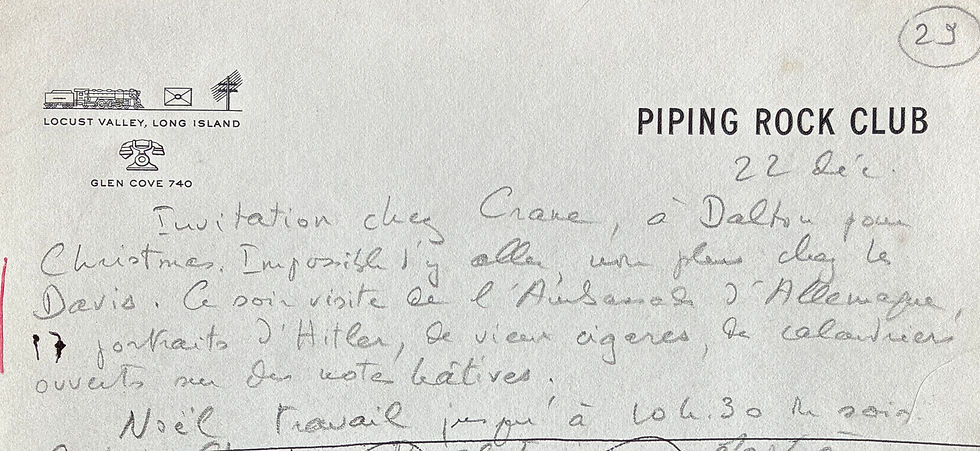 29
LOCUST VALLEY, LONG ISLAND
GLEN COVE 740
PIPING ROCK CLUB
22 déc.
Invitation chez Crane, à Dalton pour
Christmas. Impossible d'y aller, non plus chez les
Davis. Ce soir visite de l'Ambassade d'Allemagne,
17 portraits d'Hitler, de vieux cigares, de calendriers
ouverts sur des notes hâtives.
Noël travail jusqu'à 10h.30 du soir.